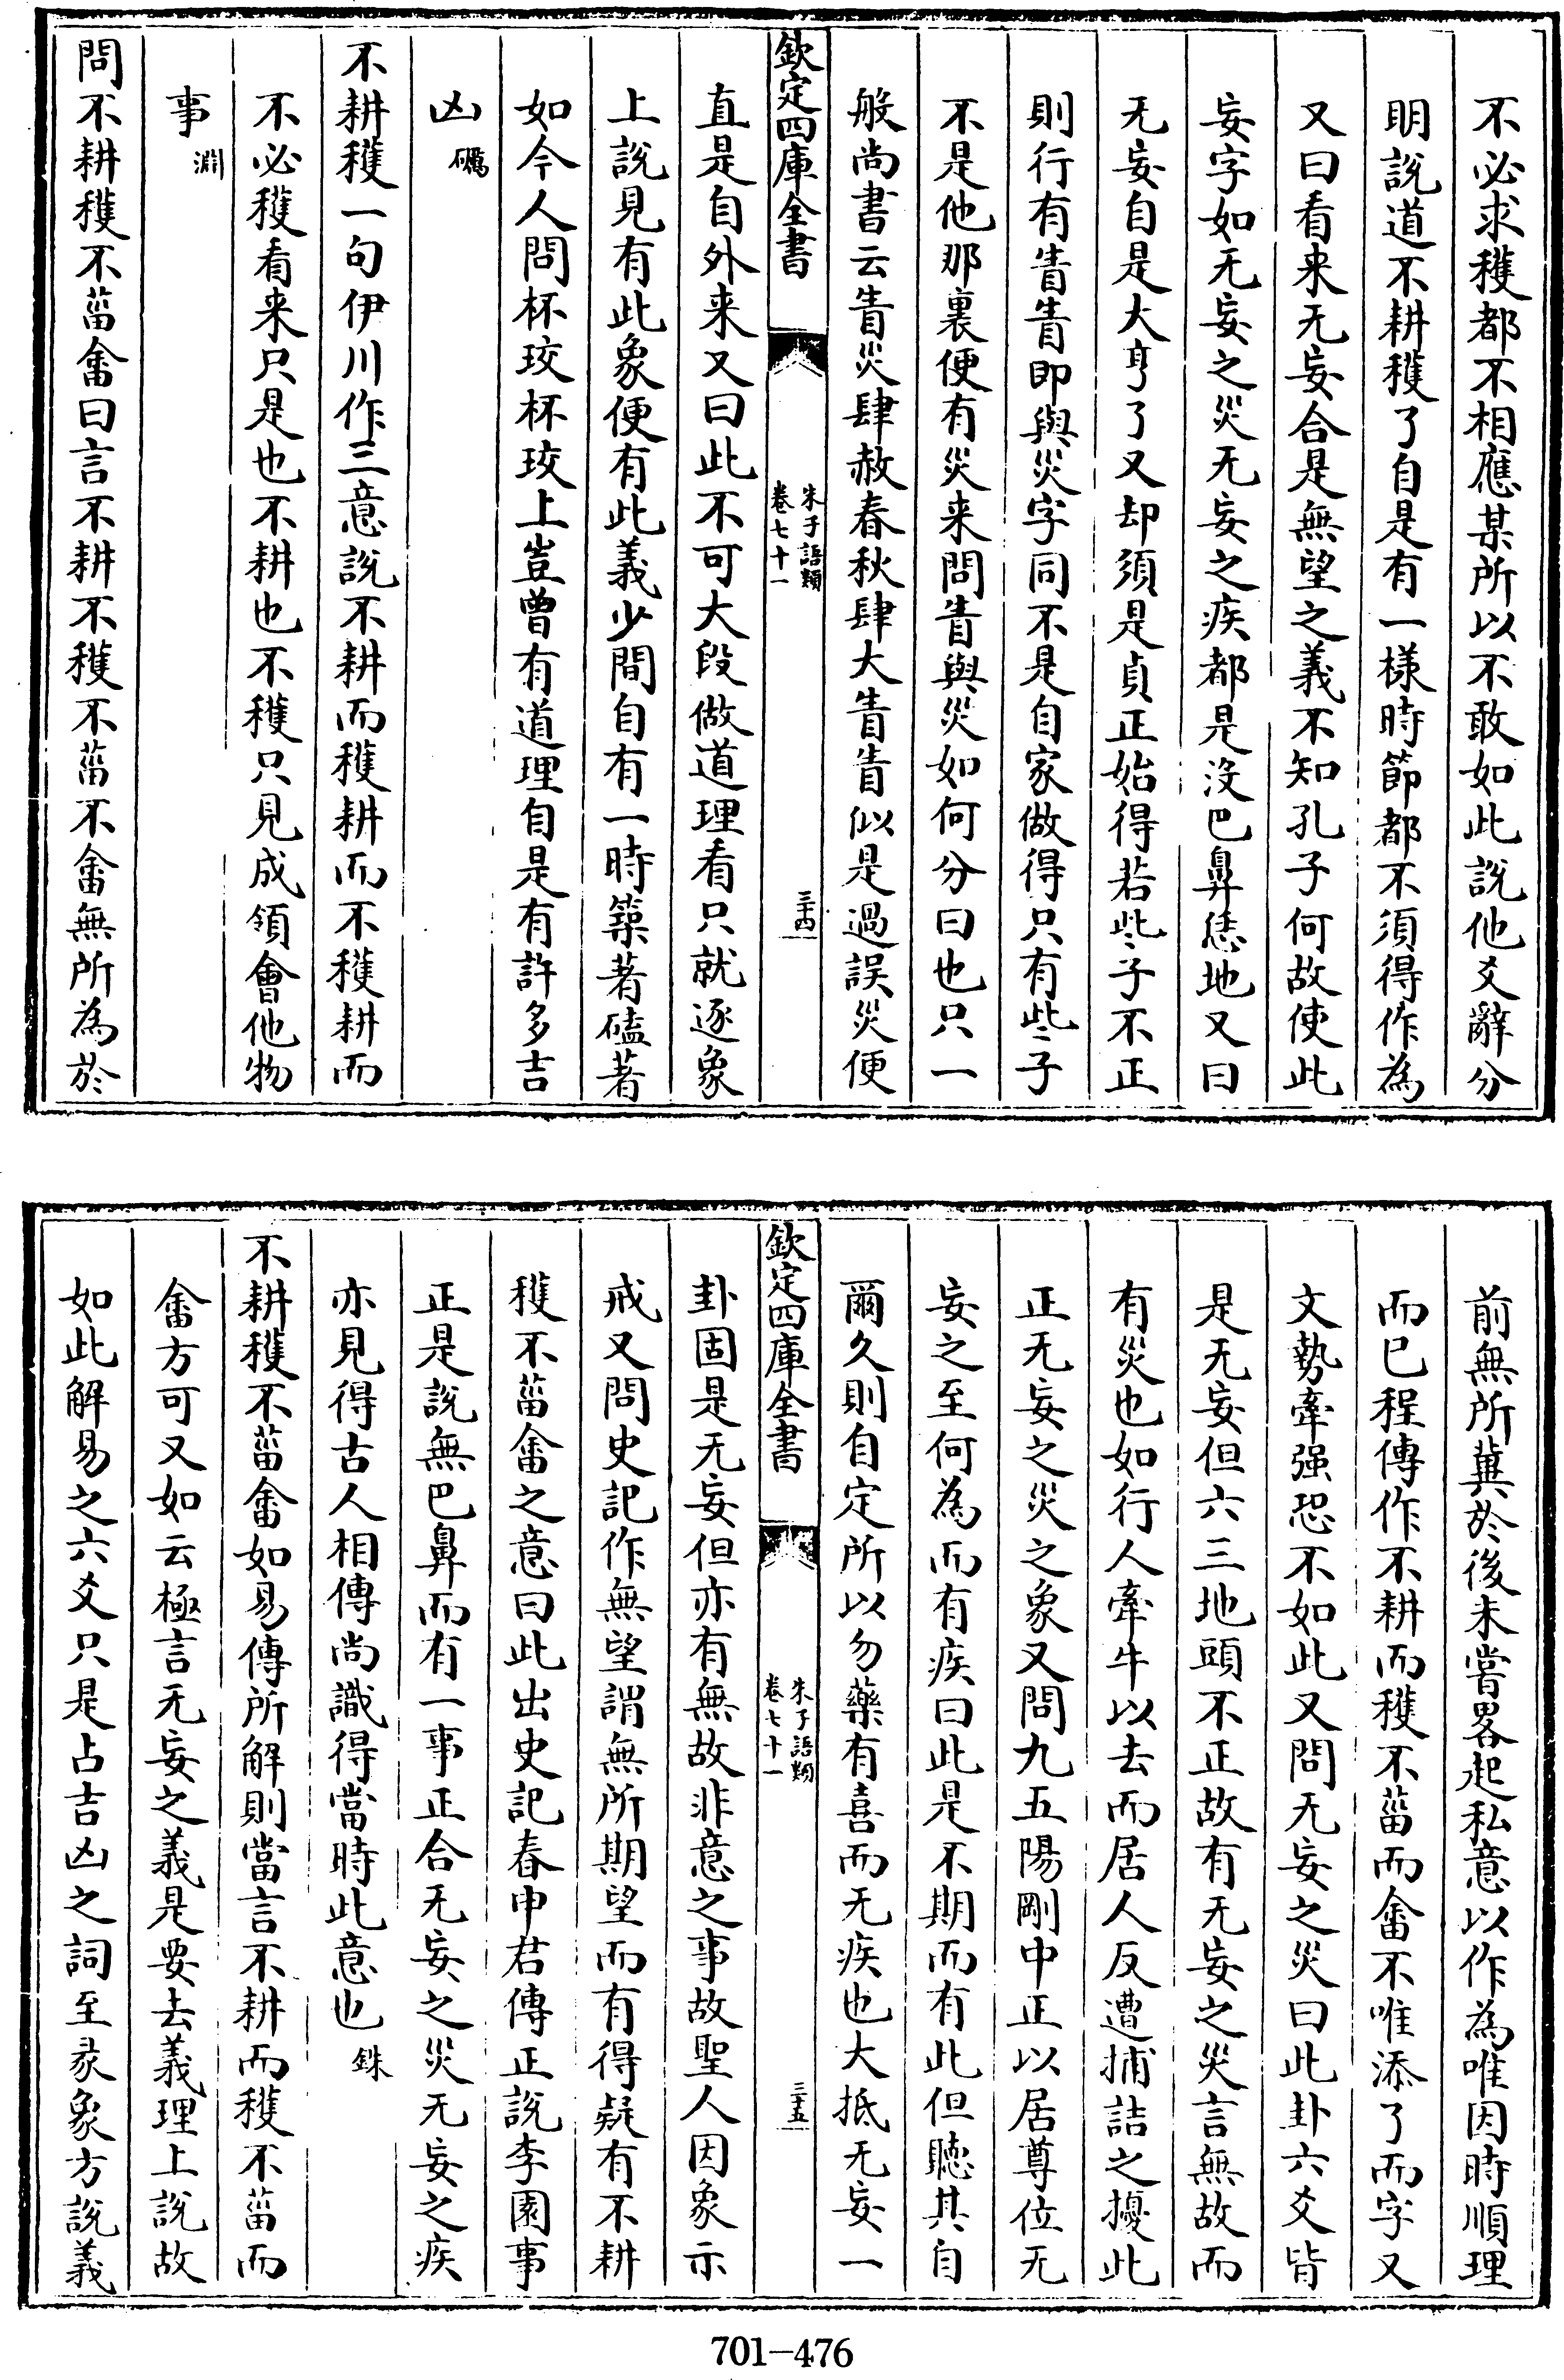 不必求穫都不相應某所以不敢如此說他爻辭分
明說道不耕穫了自是有一様時節都不須得作為
又曰看来无妄合是無望之義不知孔子何故使此
妄字如无妄之災无妄之疾都是沒巴鼻恁地又曰
无妄自是大亨了又却須是貞正始得若些子不正
則行有眚眚即與災字同不是自家做得只有些子
不是他那裏便有災来問眚與災如何分曰也只一
般尚書云眚災肆赦春秋肆大眚眚似是過誤災便
欽定四庫全書
朱子語類
卷七十一
三十四
直是自外来又曰此不可大段做道理看只就逐象
上說見有此象便有此義少間自有一時築著磕著
如今人問杯珓杯珓上豈曾有道理自是有許多吉
凶礪
不耕穫一句伊川作三意說不耕而穫耕而不穫耕而
不必穫看来只是也不耕也不穫只見成領會他物
事淵
問不耕穫不菑畬曰言不耕不穫不菑不畬無所為於
前無所兾於後未嘗畧起私意以作為唯因時順理
而已程傳作不耕而穫不菑而畬不唯添了而字又
文勢牽强恐不如此又問无妄之災曰此卦六爻皆
是无妄但六三地頭不正故有无妄之災言無故而
有災也如行人牽牛以去而居人反遭捕詰之擾此
正无妄之災之象又問九五陽剛中正以居尊位无
妄之至何為而有疾曰此是不期而有此但聽其自
爾久則自定所以勿藥有喜而无疾也大抵无妄一
欽定四庫全書
朱子語類
卷七十一
三十五
卦固是无妄但亦有無故非意之事故聖人因象示
戒又問史記作無望謂無所期望而有得疑有不耕
穫不菑畬之意曰此出史記春申君傳正說李園事
正是說無巴鼻而有一事正合无妄之災无妄之疾
亦見得古人相傳尚識得當時此意也銖
不耕穫不菑畬如易傳所解則當言不耕而穫不菑而
畬方可又如云極言无妄之義是要去義理上說故
如此解易之六爻只是占吉凶之詞至彖象方說義
701-476